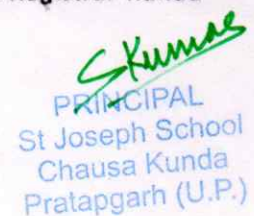 SKumar
PRINCIPAL
St Joseph School
Chausa Kunda
Pratapgarh (U.P.)